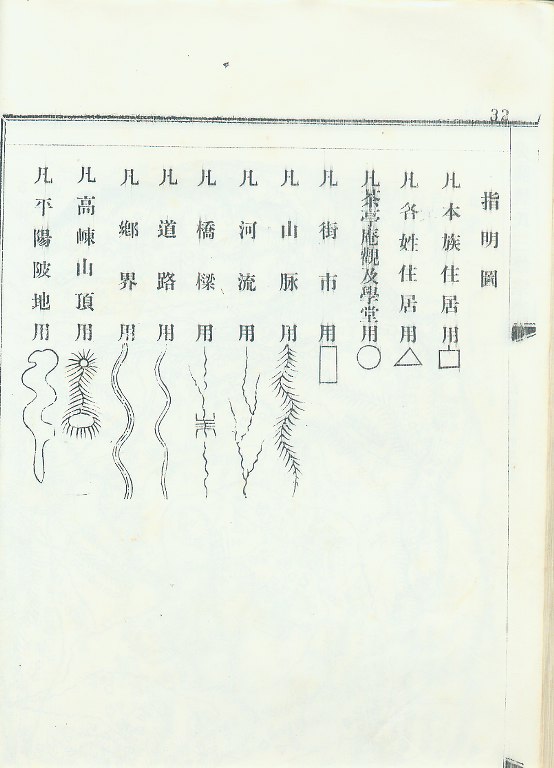 32
指明圖
凡本族住居用
凡各姓住居用
凡茶亭庵觀及學堂用
凡街市用
凡山脉用
凡河流用
凡橋樑用
凡道路用
凡鄉界用
凡高崠山頂用
凡平陽陂地用